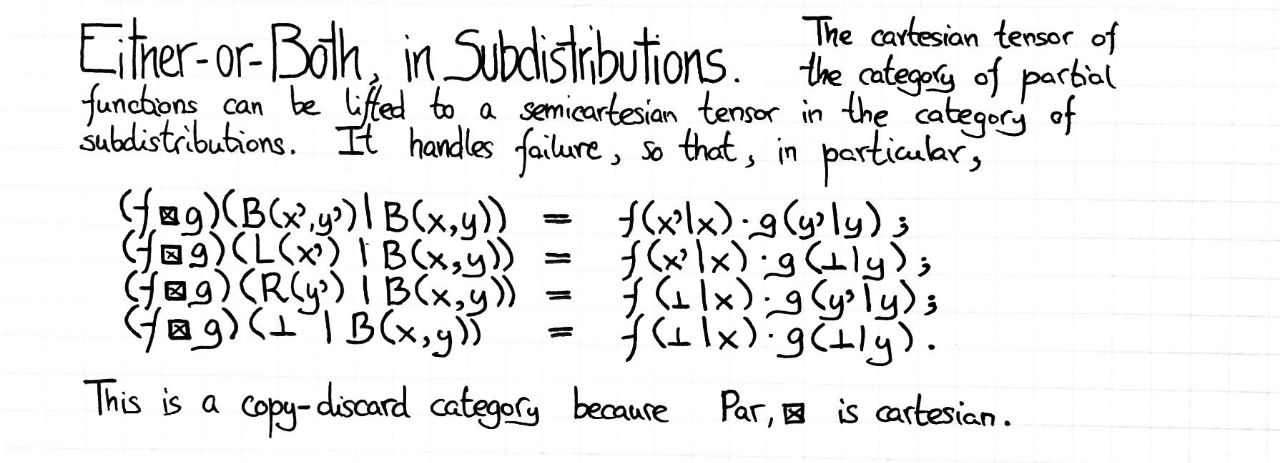 Either-or-Both, in Subdistributions. The cartesian tensor of
the category of partial
functions can be lifted to a semicartesian tensor in the category of
subdistributions. It handles failure, so that, in particular,
(f ⊠ g)(B(x',y') | B(x,y)) = f(x'|x) · g(y'|y) ;
(f ⊠ g)(L(x') | B(x,y)) = f(x'|x) · g(⊥|y) ;
(f ⊠ g)(R(y') | B(x,y)) = f(⊥|x) · g(y'|y) ;
(f ⊠ g)(⊥ | B(x,y)) = f(⊥|x) · g(⊥|y) .
This is a copy-discard category because Par, ⊠ is cartesian.